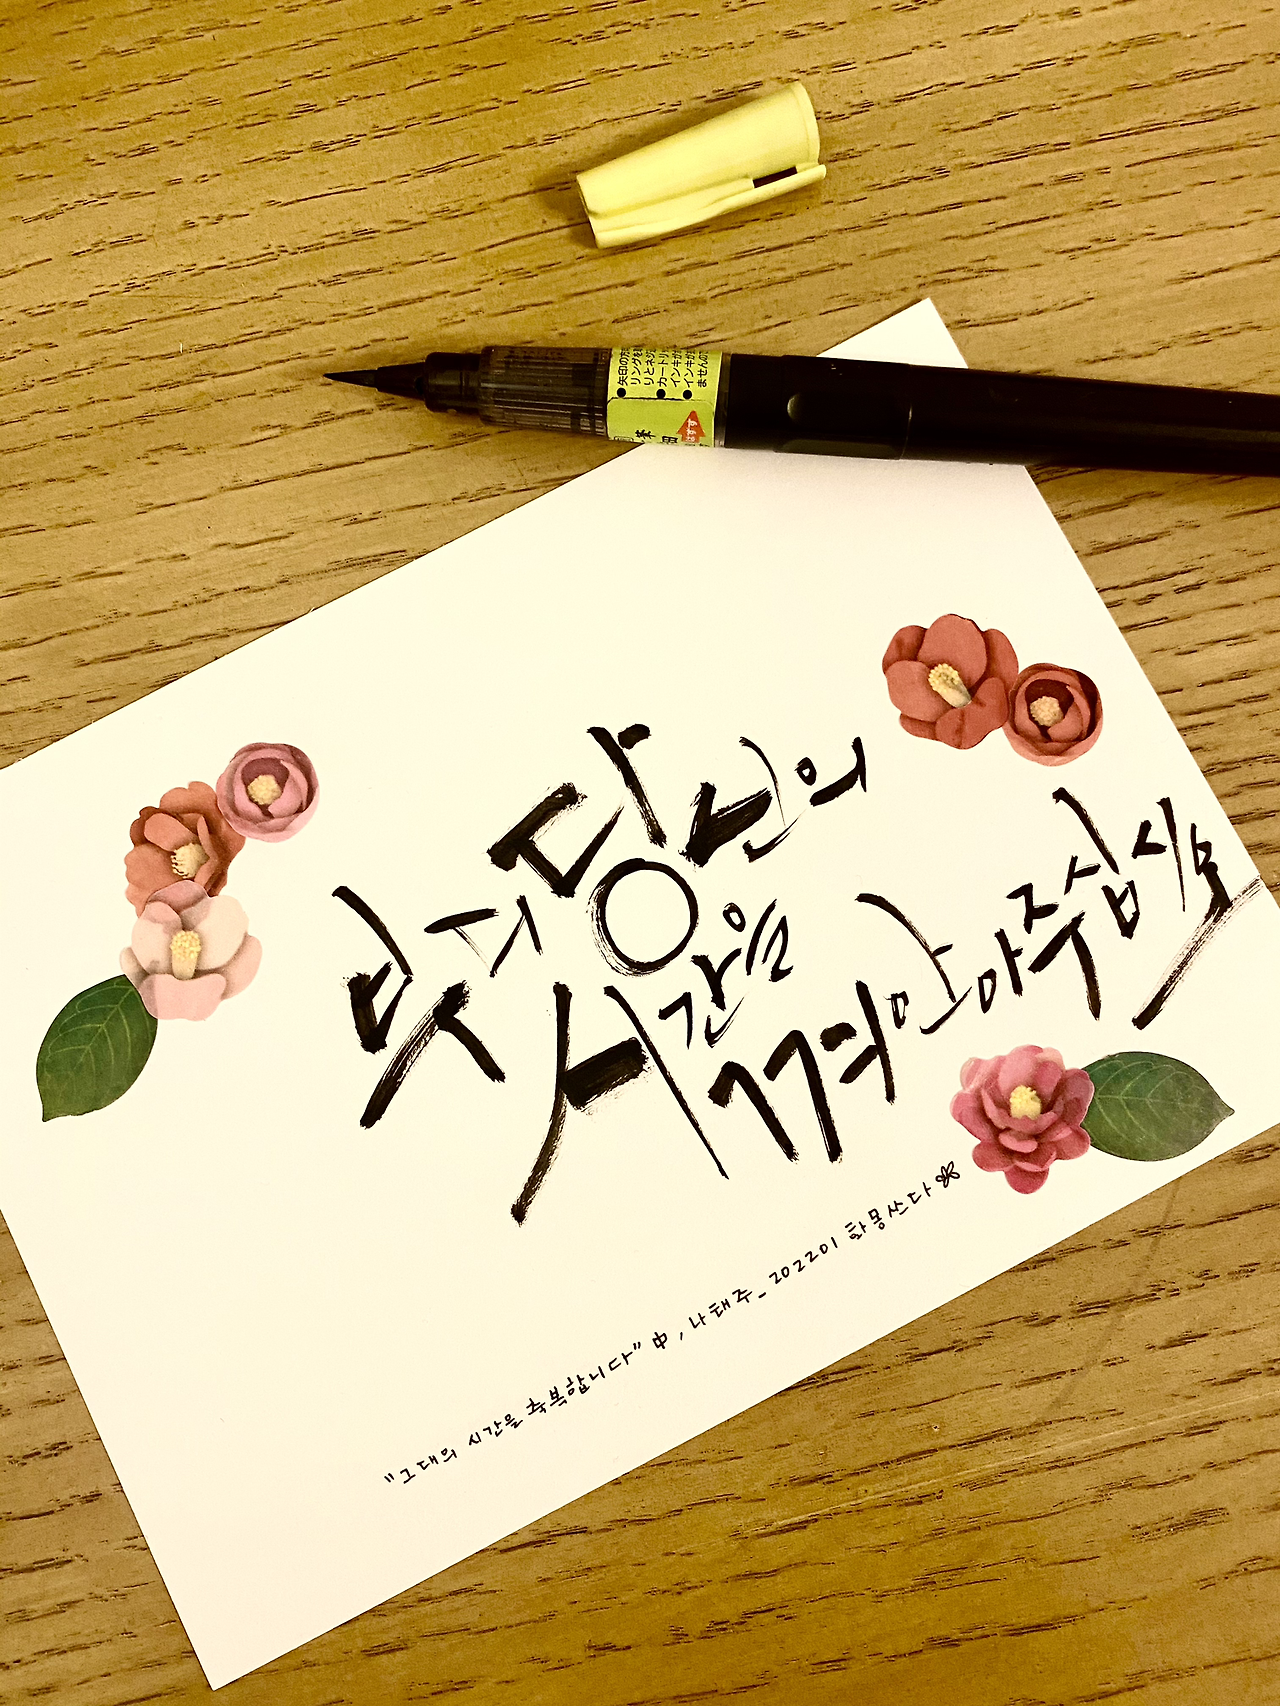 ●矢印の方
リングを
りとネジ
●カートリ
インキが
●インキが
ませんので
부디 당신의
시간을 껴안아주십시오
"그대의 시간을 축복합니다" 中, 나태주_ 202201 화몽쓰다